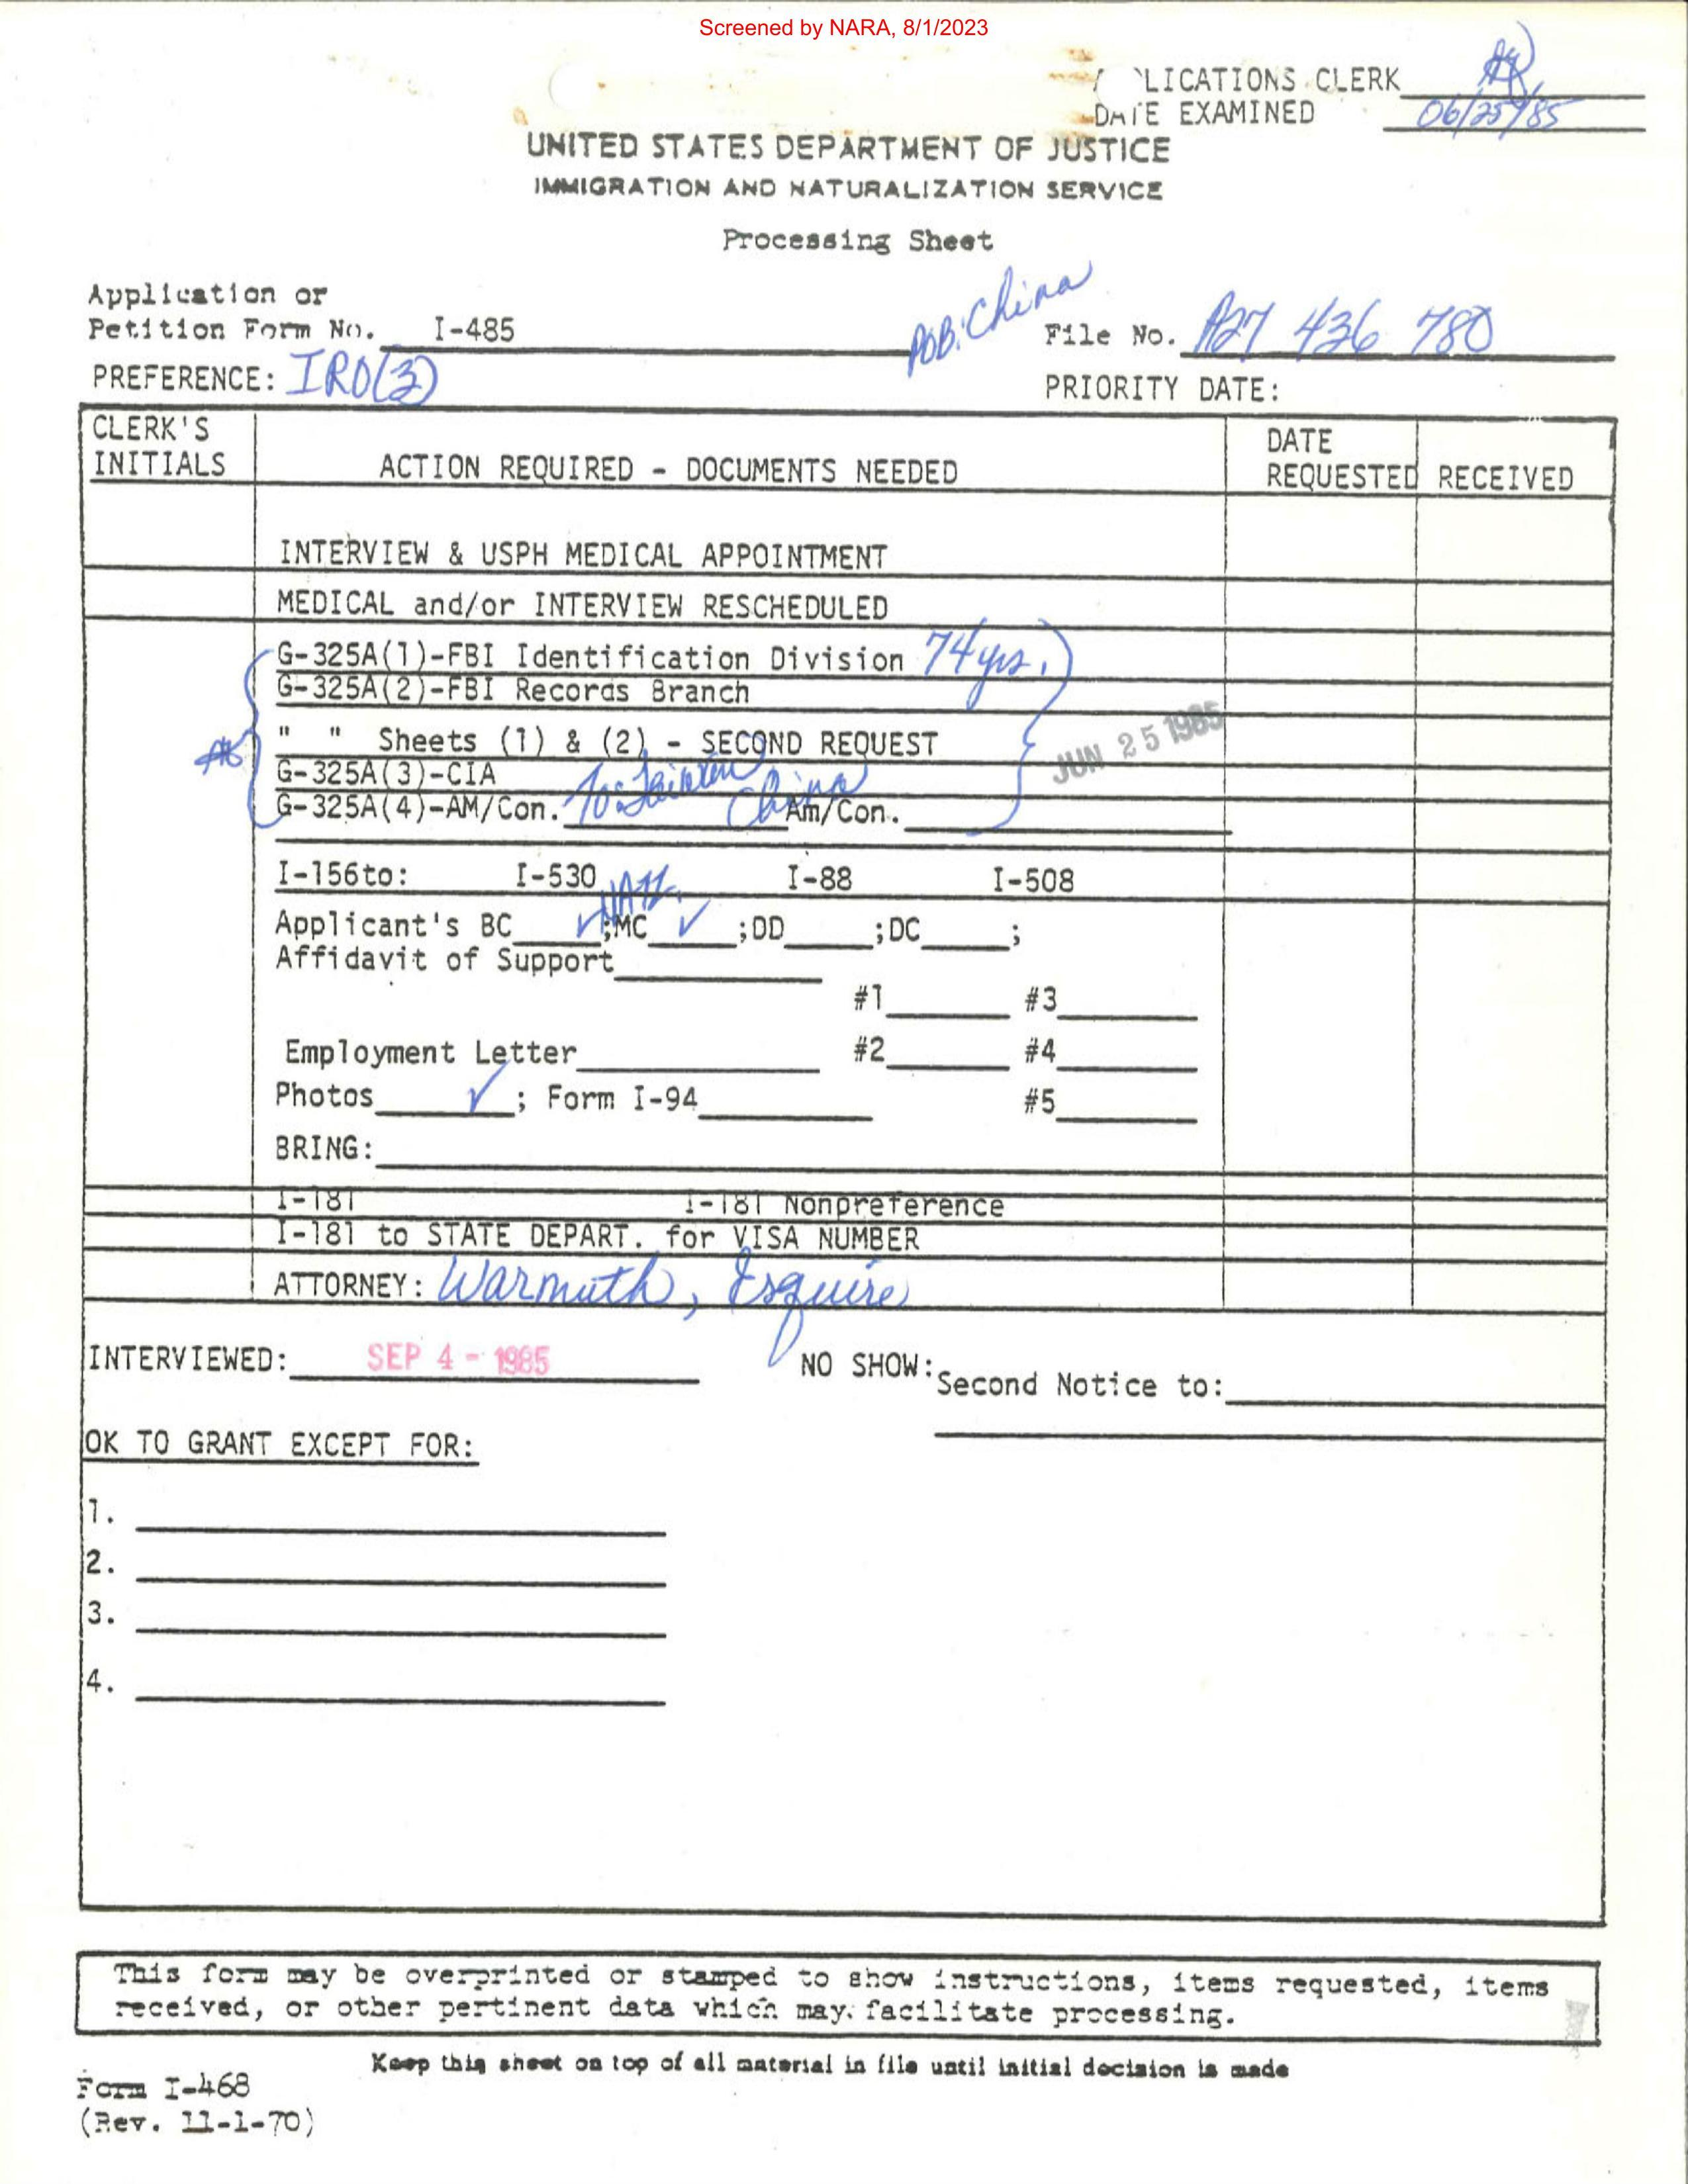 Screened by NARA, 8/1/2023
LICATIONS CLERK
DATE EXAMINED 06/25/85
UNITED STATES DEPARTMENT OF JUSTICE
IMMIGRATION AND NATURALIZATION SERVICE
Processing Sheet
Application or
Petition Form No. I-485
POB: China
File No. A27 436 780
PREFERENCE: IRO(3)
PRIORITY DATE:
CLERK'S
INITIALS
ACTION REQUIRED - DOCUMENTS NEEDED
DATE
REQUESTED RECEIVED
INTERVIEW & USPH MEDICAL APPOINTMENT
MEDICAL and/or INTERVIEW RESCHEDULED
G-325A(1)-FBI Identification Division 74 yrs.
G-325A(2)-FBI Records Branch
" " Sheets (1) & (2) - SECOND REQUEST
JUN 25 1985
G-325A(3)-CIA
G-325A(4)-AM/Con. To: China Am/Con.
I-156to: I-530 I-88 I-508
Applicant's BC ✓;MC ✓ ;DD ;DC ;
Affidavit of Support
#1 #3
Employment Letter #2 #4
Photos ✓; Form I-94 #5
BRING:
I-181 I-181 Nonpreference
I-181 to STATE DEPART. for VISA NUMBER
ATTORNEY: Warmuth, Esquire
INTERVIEWED: SEP 4 - 1985 NO SHOW: Second Notice to:
OK TO GRANT EXCEPT FOR:
1.
2.
3.
4.
This form may be overprinted or stamped to show instructions, items requested, items
received, or other pertinent data which may facilitate processing.
Keep this sheet on top of all material in file until initial decision is made
Form I-468
(Rev. 11-1-70)